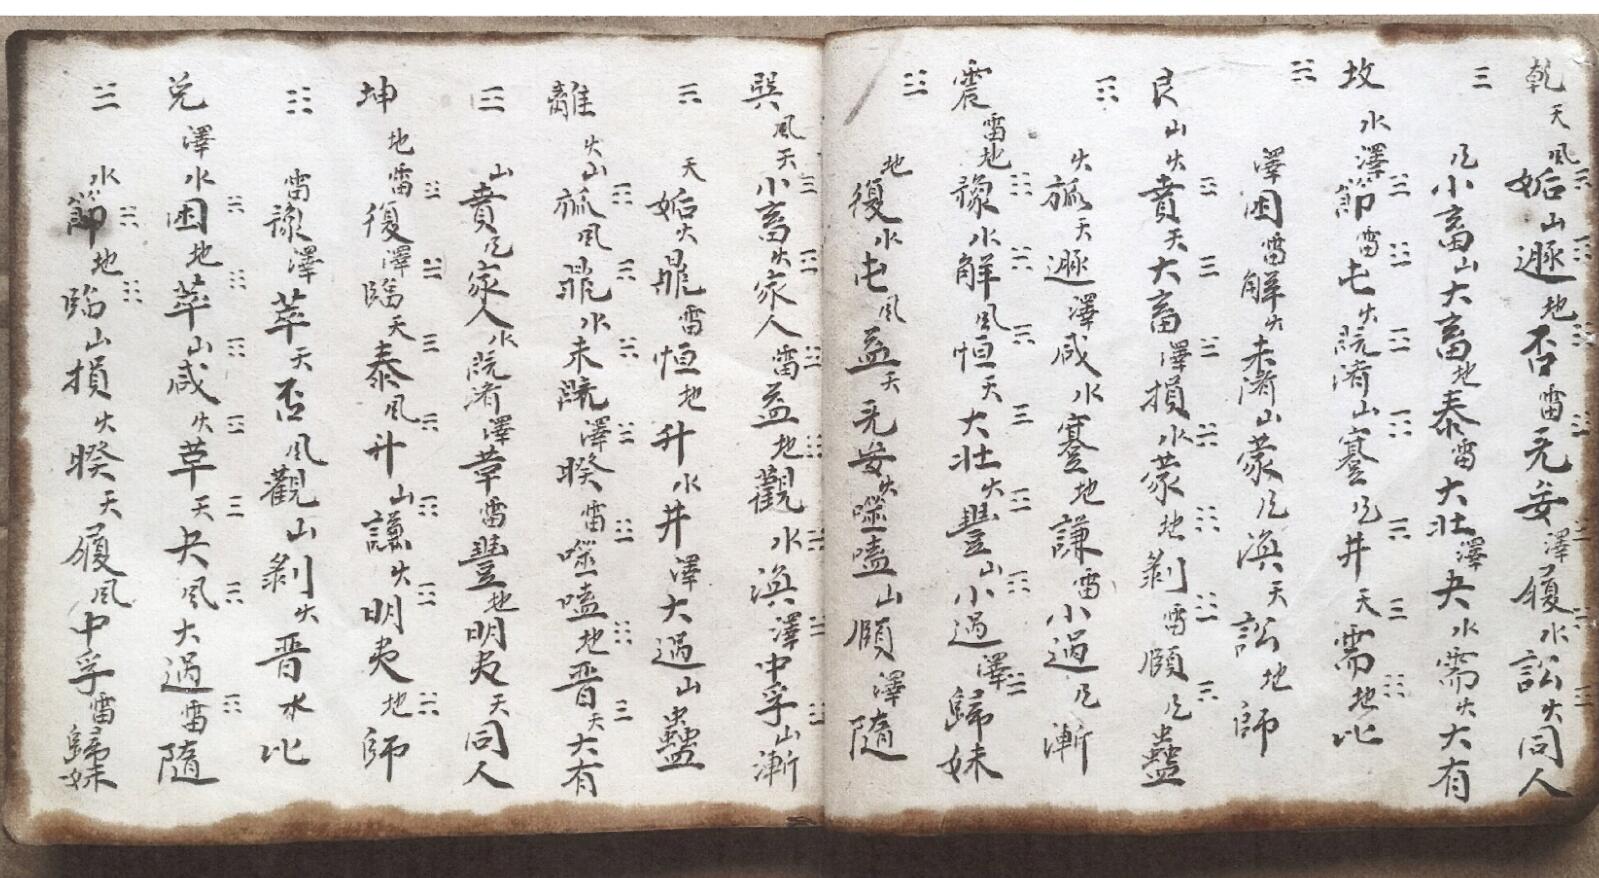 乾天風姤山遯地否雷无妄澤履水訟火同人
凡小畜山大畜地泰雷大壯澤夬水需火大有
坎水澤節雷屯火既濟山蹇凡井天需地比
澤困雷解火未濟山蒙凡渙天訟地師
艮山火賁天大畜澤損水蒙地剝雷頤凡蠱
火旅天遯澤咸水蹇地謙雷小過凡漸
震雷地豫水解風恒天大壯火豐山小過澤歸妹
地復水屯風益天无妄火噬嗑山頤澤隨
巽風天小畜火家人雷益地觀水渙澤中孚山漸
天姤火鼎雷恒地升水井澤大過山蠱
離火山旅風鼎水未既澤睽雷噬嗑地晋天大有
山賁凡家人水既濟澤革雷豐地明夷天同人
坤地雷復澤臨天泰風升山謙火明夷地師
雷豫澤萃天否風觀山剝火晋水比
兌澤水困地萃山咸火革天夬風大過雷隨
水節地臨山損火睽天履風中孚雷歸妹